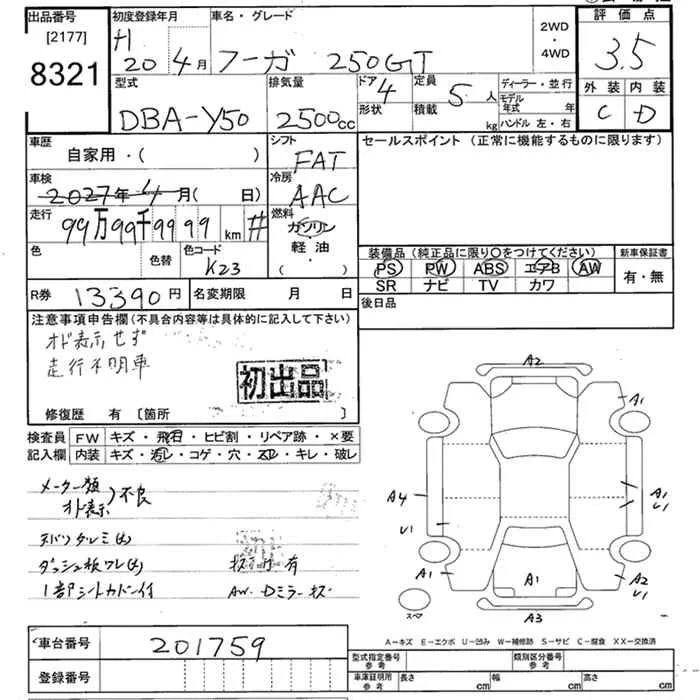 出品番号 初度登録年月 車名・グレード 2WD・4WD 評価点
[2177] H 20 4月 フーガ 250GT 3.5
8321
型式 排気量 ドア 4 定員 5人 ディーラー・並行 外装 内装
DBA-Y50 2500cc 形状 積載 kg モデル年式 年 C D
ハンドル 左・右
車歴 シフト セールスポイント (正常に機能するものに限ります)
自家用・( ) FAT
車検 冷房
2027年4月( 日) AAC
走行 燃料
99万99千9999km # ガソリン
色 色替 色コード 軽油
K23 ・( )
装備品 (純正品に限り〇をつけてください) 新車保証書
PS PW ABS エアB AW 有・無
SR ナビ TV カワ
R券 13,390円 名変期限 月 日 後日品
注意事項申告欄(不具合内容等は具体的に記入して下さい)
オド表示せず
走行不明車
初出品
修復歴 有 [箇所 ]
検査員 FW キズ・飛石・ヒビ割・リペア跡・×要
記入欄 内装 キズ・汚レ・コゲ・穴・スレ・キレ・破レ
メーター類
オド表示 )不良
天バリタルミ大
ダッシュ板ワレ大 有
1部シートカバー付 AW・Dミラーキズ
A2
A1
A4 A1
U1 U1
A1 A1 A2
U1
スペア A3
A-キズ E-エクボ U-凹み W-補修跡 S-サビ C-腐食 XX-交換済
車台番号 201759
登録番号
型式指定番号 参考 類別区分番号 参考
車庫証明用 参考 長さ cm 幅 cm 高さ cm